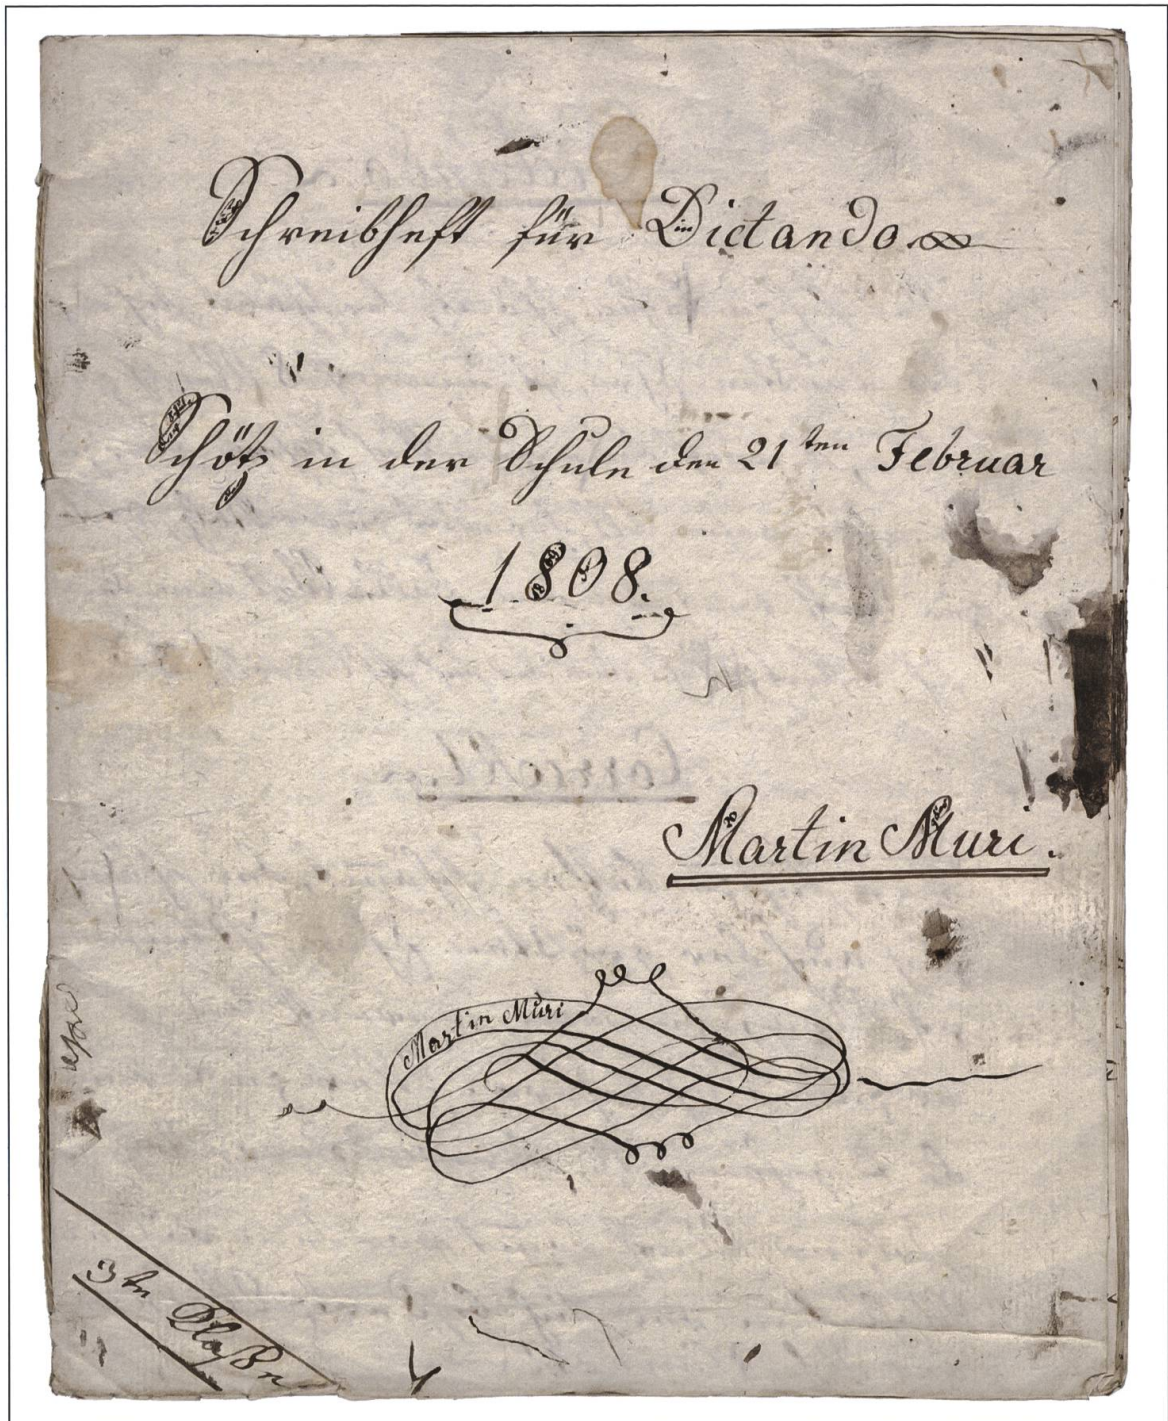 Schreibheft für Dictando
Schötz in der Schule den 21ten Februar
1808.
Correkt.
Martin Muri.
Martin Muri
3te Claße